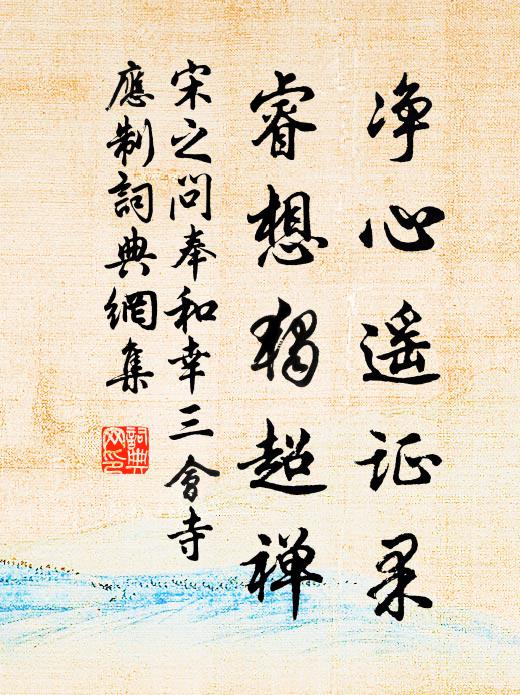 净心遥证果
睿想独超禅
宋之问奉和幸三會寺
應制詞典網集
詞典网印